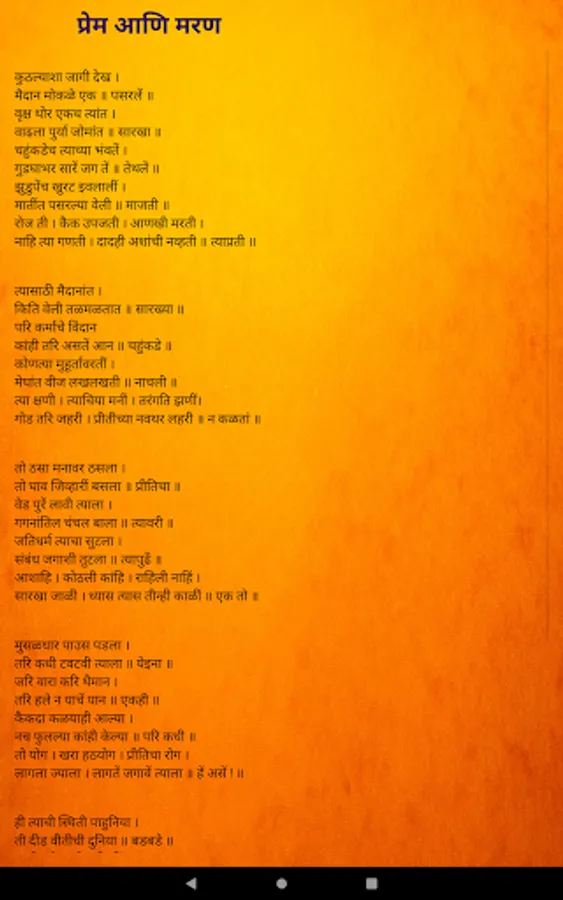 प्रेम आणि मरण
कुठल्याशा जागी देख ।
मैदान मोकळे एक ॥ पसरलें ॥
वृक्ष थोर एकच त्यांत ।
वाढला पुर्या जोमांत ॥ सारखा ॥
चहुंकडेच त्याच्या भंवतें ।
गुडघाभर सारें जग तें ॥ तेथलें ॥
झुडुपेंच खुरट इवलालीं ।
मातींत पसरल्या वेली ॥ माजती ॥
रोज ती । कैक उपजती । आणखी मरती ।
नाहि त्या गणती । दादही अशांची नव्हती ॥ त्याप्रती ॥
त्यासाठी मैदानांत ।
किति वेली तळमळतात ॥ सारख्या ॥
परि कर्माचे विंदान
कांही तरि असतें आन ॥ चहुंकडे ॥
कोणत्या मुहूर्तावरतीं ।
मेघांत वीज लखलखती ॥ नाचली ॥
त्या क्षणी । त्याचिया मनीं । तरंगति झणीं।
गोड तरि जहरी । प्रीतीच्या नवथर लहरी ॥ न कळतां ॥
तो ठसा मनावर ठसला ।
तो घाव जिव्हारीं बसला ॥ प्रीतिचा ॥
वेड पुरें लावी त्याला ।
गगनांतिल चंचल बाला ॥ त्यावरी ॥
जतिधर्म त्याचा सुटला ।
संबंध जगाशी तुटला ॥ त्यापुढें ॥
आशाहि । कोठली कांहि । राहिली नाहिं ।
सारखा जाळी । ध्यास त्यास तीन्ही काळीं ॥ एक तो ॥
मुसळधार पाउस पडला ।
तरि कधी टवटवी त्याला ॥ येइना ॥
जरि वारा करि थैमान ।
तरि हले न याचें पान ॥ एकही ॥
कैकदा कळयाही आल्या ।
नच फुलल्या कांही केल्या ॥ परि कधी ॥
तो योग । खरा हठयोग । प्रीतिचा रोग ।
लागला ज्याला । लागतें जगावें त्याला ॥ हें असें ! ॥
ही त्याची स्थिती पाहुनिया ।
ती दीड वीतीची दुनिया ॥ बडबडे ॥